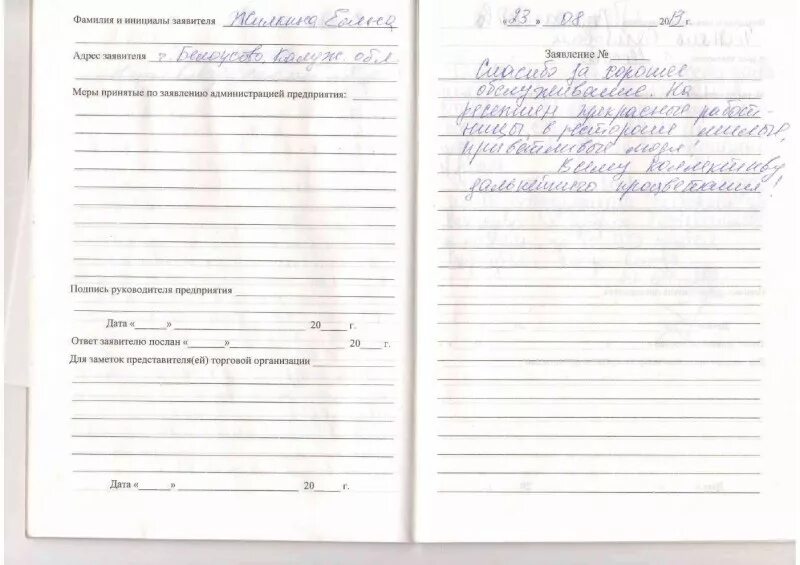 Фамилия и инициалы заявителя Жилкина Елена
Адрес заявителя г. Белоусово Калуж. обл.
Меры принятые по заявлению администрацией предприятия:
Подпись руководителя предприятия
Дата «______» 20____ г.
Ответ заявителю послан «______» 20____ г.
Для заметок представителя(ей) торговой организации
Дата «______» 20____ г.
«23» 08 2019 г.
Заявление №
Спасибо за хорошее
обслуживание. На
ресепшен прекрасные работ-
ницы, в ресторане милые,
приветливые люди!
Всему коллективу
дальнейшего процветания!